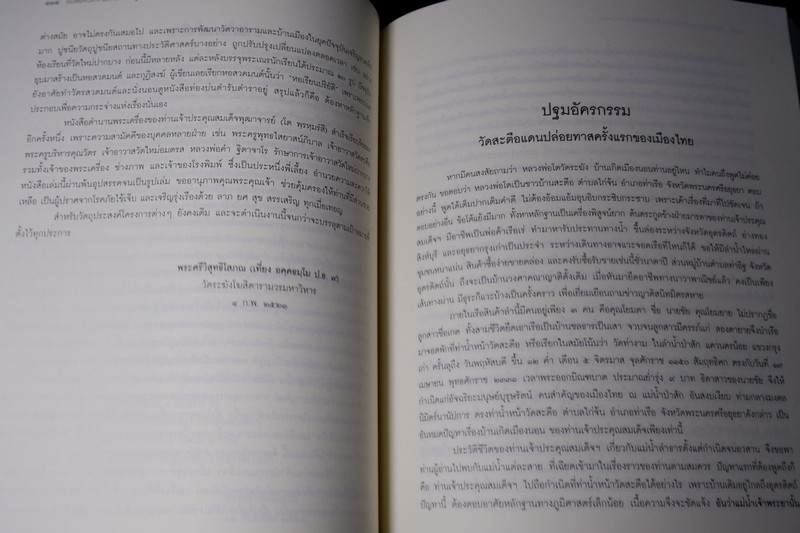 ต่างสมัย อาจไม่ตรงกันเสมอไป และเพราะการพัฒนาวัดวาอารามและบ้านเมืองในยุคปัจจุบันเจริญ
มาก ปูชนียวัตถุปูชนียสถานทางประวัติศาสตร์บางอย่าง ถูกปรับปรุงเปลี่ยนแปลงตลอดเวลา
ห้องเรียนที่วัดใหม่ปากบาง ก่อนนี้มีหลายหลัง แต่ละหลังบรรจุพระเณรนักเรียนได้ประมาณ ๒๐ รูป
ยุบมาสร้างเป็นหอสวดมนต์ และกุฏิสงฆ์ ผู้เขียนเลยเรียกหอสวดมนต์นั้นว่า "หอเรียนปริยัติ"
ยังอาศัยทำวัตรสวดมนต์และนั่งนอนดูหนังสือท่องบ่นตำรับตำราอยู่ สรุปแล้วก็คือ ต้องหาหลักฐาน
ประกอบเพื่อความกระจ่างแห่งเรื่องนั่นเอง
หนังสือตำนานพระเครื่องของท่านเจ้าประคุณสมเด็จพุฒาจารย์ (โต พฺรหฺมรํสี) สำเร็จเรียบร้อย
อีกครั้งหนึ่ง เพราะความสามัคคีของบุคคลหลายฝ่าย เช่น พระครูพุทธไสยาสน์ภิบาล เจ้าอาวาสวัดสะตือ
พระครูบริหารคุณวัตร เจ้าอาวาสวัดใหม่อมตรส หลวงพ่อคำ ฐิตาจาโร รักษาการเจ้าอาวาสวัดใหม่
รวมทั้งเจ้าของพระเครื่อง ช่างภาพ และเจ้าของโรงพิมพ์ ซึ่งเป็นประหนึ่งพี่เลี้ยง อำนวยความสะดวก
หนังสือเล่มนี้ผ่านพ้นอุปสรรคจนเป็นรูปเล่ม ขออานุภาพคุณพระคุณเจ้า ช่วยคุ้มครองให้ท่านที่มีส่วนช่วย
เหลือ เป็นผู้ปราศจากโรคภัยไข้เจ็บ และเจริญรุ่งเรืองด้วย ลาภ ยศ สุข สรรเสริญ ทุกเมื่อเทอญ
สำหรับวัตถุประสงค์โครงการต่างๆ ยังคงเดิม และจะดำเนินงานนี้จนกว่าจะบรรลุตามเป้าหมายที่
ตั้งไว้ทุกประการ
พระศรีวิสุทธิโสภณ (เที่ยง อคฺคธมฺโม ป.ธ. ๙)
วัดระฆังโฆสิตารามวรมหาวิหาร
๑ ก.พ. ๒๕๒๑
ปฐมอัครกรรม
วัดสะตือแดนปล่อยทาสครั้งแรกของเมืองไทย
หากมีคนสงสัยถามว่า หลวงพ่อโตวัดระฆัง บ้านเกิดเมืองนอนท่านอยู่ไหน ทำไมคนถึงพูดไม่ค่อย
ตรงกัน ขอตอบว่า หลวงพ่อโตเป็นชาวบ้านสะตือ ตำบลไก่จ้น อำเภอท่าเรือ จังหวัดพระนครศรีอยุธยา ตอบ
อย่างนี้ พูดได้เต็มปากเต็มคำดี ไม่ต้องอ้อมแอ้มอุบอิบกระซิบกระซาบ เพราะเค้าเรื่องที่มาที่ไปชัดเจน ถ้า
ตอบอย่างอื่น ข้อโต้แย้งมีมาก ทั้งหาหลักฐานเป็นเครื่องพิสูจน์ยาก ต้นตระกูลข้างฝ่ายมารดาของท่านเจ้าประคุณ
สมเด็จฯ มีอาชีพเป็นพ่อค้าเรือเร่ ทำมาหารับประทานทางน้ำ ขึ้นล่องระหว่างจังหวัดอุตรดิตถ์ อ่างทอง
สิงห์บุรี และอยุธยากรุงเก่าเป็นประจำ ระหว่างเดินทางอาจแวะจอดเรือที่ไหนก็ได้ ขอให้มีลำน้ำไหลผ่าน
ชุมชนหนาแน่น สินค้าซื้อง่ายขายคล่อง และคงรับซื้อรับขายเช่นนี้ชั่วนาตาปี ส่วนหมู่บ้านตำบลท่าอิฐ จังหวัด
อุตรดิตถ์นั้น ถึงจะเป็นบ้านวงศาคณาญาติดั้งเดิม เมื่อหันมายึดอาชีพทางนาวาพาณิชย์แล้ว คงเป็นเพียง
เส้นทางผ่าน มีธุระก็แวะบ้างเป็นครั้งคราว เพื่อเยี่ยมเยือนถามข่าวญาติสนิทมิตรสหาย
ภายในเรือสินค้าลำนี้มีคนอยู่เพียง ๓ คน คือคุณโยมตา ชื่อ นายชัย คุณโยมยาย ไม่ปรากฏชื่อ
ลูกสาวชื่อเกต ทั้งสามชีวิตยึดเอาเรือเป็นบ้านชลอารเป็นเสา จวบจนลูกสาวมีครรภ์แก่ สองตายายจึงนำเรือ
มาจอดพักที่ท่าน้ำหน้าวัดสะตือ หรือเรียกในสมัยโน้นว่า วัดท่างาม ในลำน้ำป่าสัก แควนครน้อย แขวงกรุง
เก่า ครั้นลุถึง วันพฤหัสบดี ขึ้น ๑๒ ค่ำ เดือน ๕ จิตรมาส จุลศักราช ๑๑๕๐ สัมฤทธิศก ตรงกับวันที่ ๑๗
เมษายน พุทธศักราช ๒๓๓๑ เวลาพระออกบิณฑบาต ประมาณย่ำรุ่ง ๙ บาท ธิดาสาวของนายชัย จึงให้
กำเนิดแก่อัจฉริยะมนุษย์บุรุษรัตน์ คนสำคัญของเมืองไทย ณ แม่น้ำป่าสัก อันสงบเงียบ ท่ามกลางเมฆ
นิมิตร์นานัปการ ตรงท่าน้ำหน้าวัดสะตือ ตำบลไก่จ้น อำเภอท่าเรือ จังหวัดพระนครศรีอยุธยาดังกล่าว เป็น
อันหมดปัญหาเรื่องบ้านเกิดเมืองนอน ของท่านเจ้าประคุณสมเด็จฯเพียงเท่านี้
ประวัติชีวิตของท่านเจ้าประคุณสมเด็จฯ เกี่ยวกับแม่น้ำลำธารตั้งแต่กำเนิดจนอวสาน จึงขอพา
ท่านผู้อ่านไปพบกับแม่น้ำแต่ละสาย ที่เฉียดเข้ามาในเรื่องราวของท่านตามสมควร ปัญหาแรกที่ต้องพูดถึงก็
คือ ท่านเจ้าประคุณสมเด็จฯ ไปถือกำเนิดที่ท่าน้ำหน้าวัดสะตือได้อย่างไร เพราะบ้านเดิมอยู่ใกล้ถึงอุตรดิตถ์
ปัญหานี้ ต้องตอบอาศัยหลักฐานทางภูมิศาสตร์เล็กน้อย เนื้อความจึงจะชัดแจ้ง อันว่าแม่น้ำเจ้าพระยานั้น